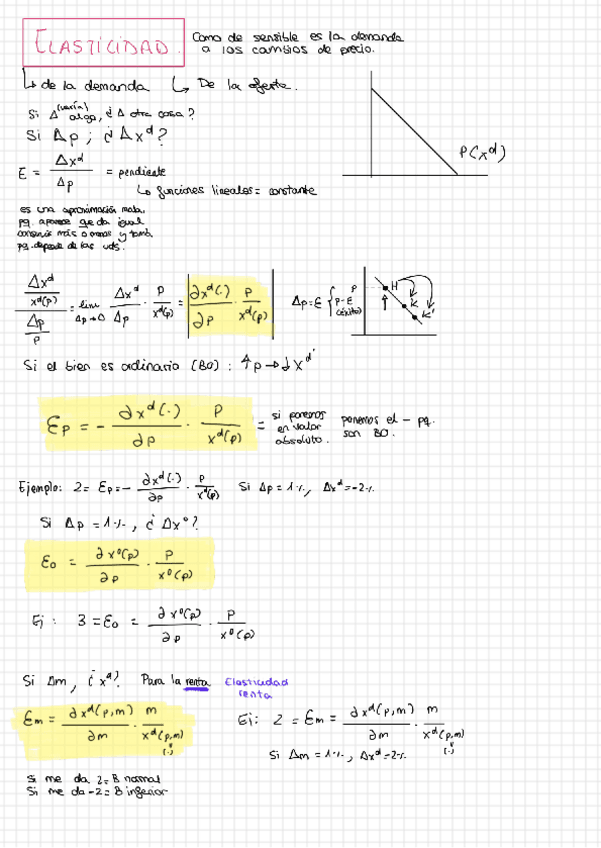 ELASTICIDAD. Como de sensible es la demanda
a los cambios de precio.
↳ de la demanda ↳ De la oferta.
Si Δ (varía) algo, ¿Δ otra cosa?
Si Δp ; ¿Δx^d?
E = Δx^d / Δp = pendiente
↳ funciones lineales = constante
P(x^d)
es una aproximación mala
pq. aparece que da igual
consumir más o menos y tamb.
pq. depende de las uds.
(Δx^d / x^d(p)) / (Δp / p) = lim Δp→0 Δx^d / Δp · p / x^d(p) = |∂x^d(·) / ∂p · p / x^d(p)|
Δp = E { p - E
p H K K'
Si el bien es ordinario (BO) : ↑p → ↓x^d
Ep = - ∂x^d(·) / ∂p · p / x^d(p) = si ponemos en valor absoluto. ponemos el - pq. son BO.
Ejemplo: 2 = Ep = - ∂x^d(·) / ∂p · p / x^d(p) Si Δp = 1%, Δx^d = -2%
Si Δp = 1%, ¿Δx^o?
Eo = ∂x^o(p) / ∂p · p / x^o(p)
Ej: 3 = Eo = ∂x^o(p) / ∂p · p / x^o(p)
Si Δm, ¿x^d? Para la renta Elasticidad
renta
Em = ∂x^d(p,m) / ∂m · m / x^d(p,m) (·)
Ej: 2 = Em = ∂x^d(p,m) / ∂m · m / x^d(p,m) (·)
Si Δm = 1%, Δx^d = 2%
Si me da 2 = B normal
Si me da -2 = B inferior